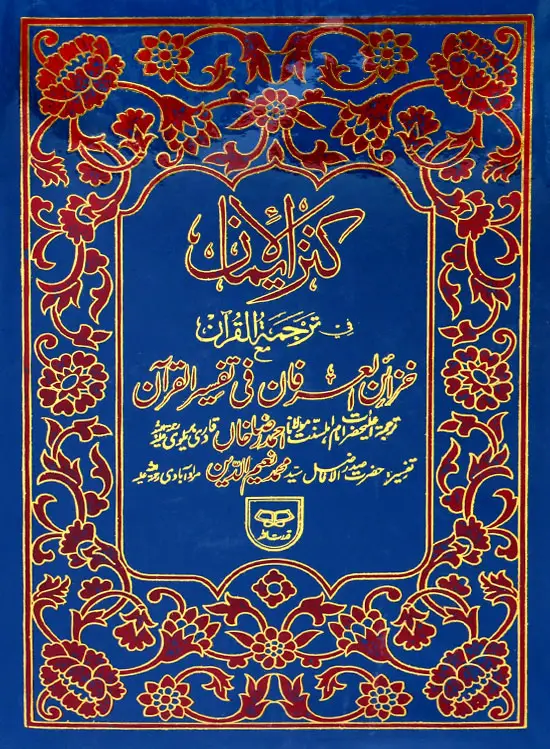 کنز الایمان
فی ترجمۃ القرآن
مع
خزائن العرفان فی تفسیر القرآن
ترجمہ: اعلیحضرت امام اہلسنت مولانا احمد رضا خاں قادری بریلوی رحمۃ اللہ علیہ
تفسیر: حضرت صدر الافاضل سید محمد نعیم الدین مراد آبادی رحمۃ اللہ علیہ
قدرت اللہ